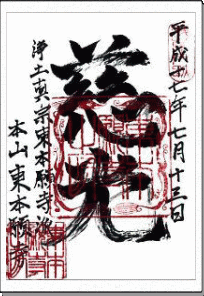 平成十七年七月十三日
慈光
浄土真宗東本願寺派
本山東本願寺